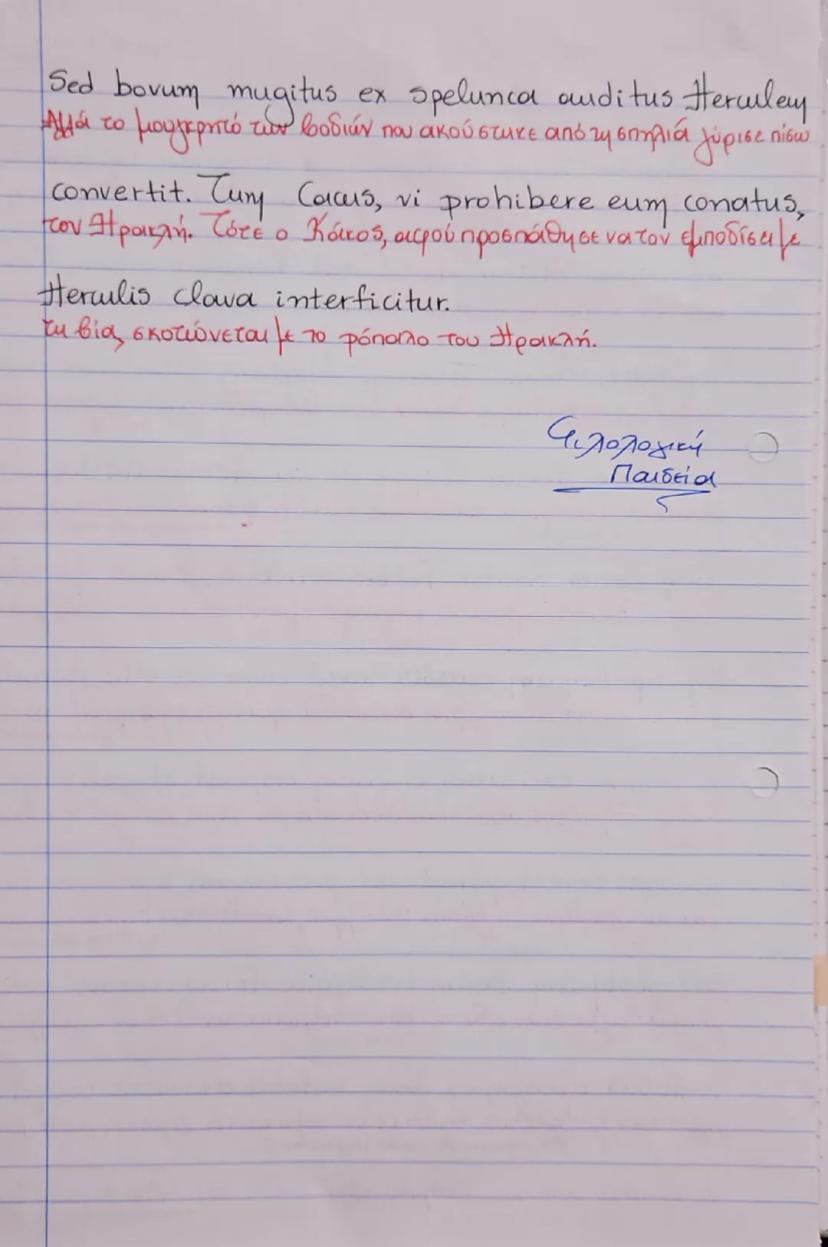 Sed bovum mugitus ex spelunca auditus Herculem
Αλλά το μουγκρητό των βοδιών που ακούστηκε από τη σπηλιά γύρισε πίσω
convertit. Tum Cacus, vi prohibere eum conatus,
τον Ηρακλή. Τότε ο Κάκος, αφού προσπάθησε να τον εμποδίσει με
Herculis clava interficitur.
τη βία, σκοτώνεται με το ρόπαλο του Ηρακλή.
Φιλολογική
Παιδεία